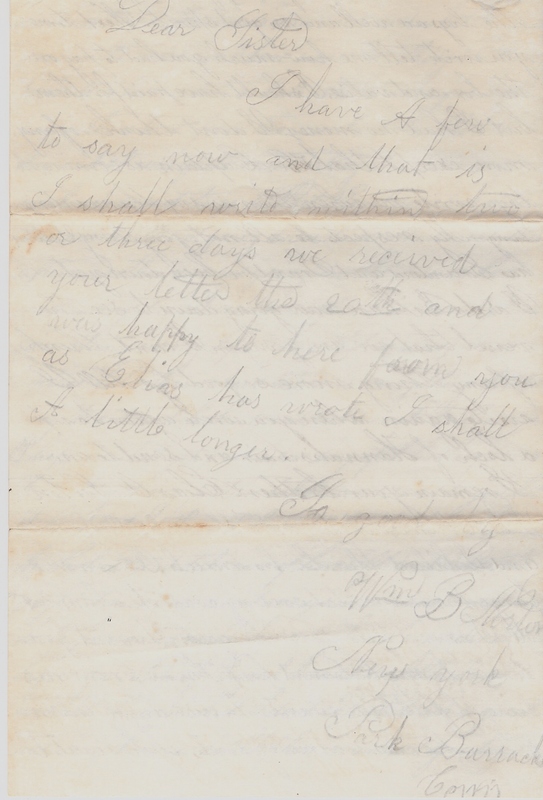 Dear Sister
I have A few
to say now and that is
I shall write within two
or three days we recieved
your letter the 20th and
was happy to here from you
as Elias has wrote I shall
A little longer.
So good by
Wm B
New york
Park Barracks